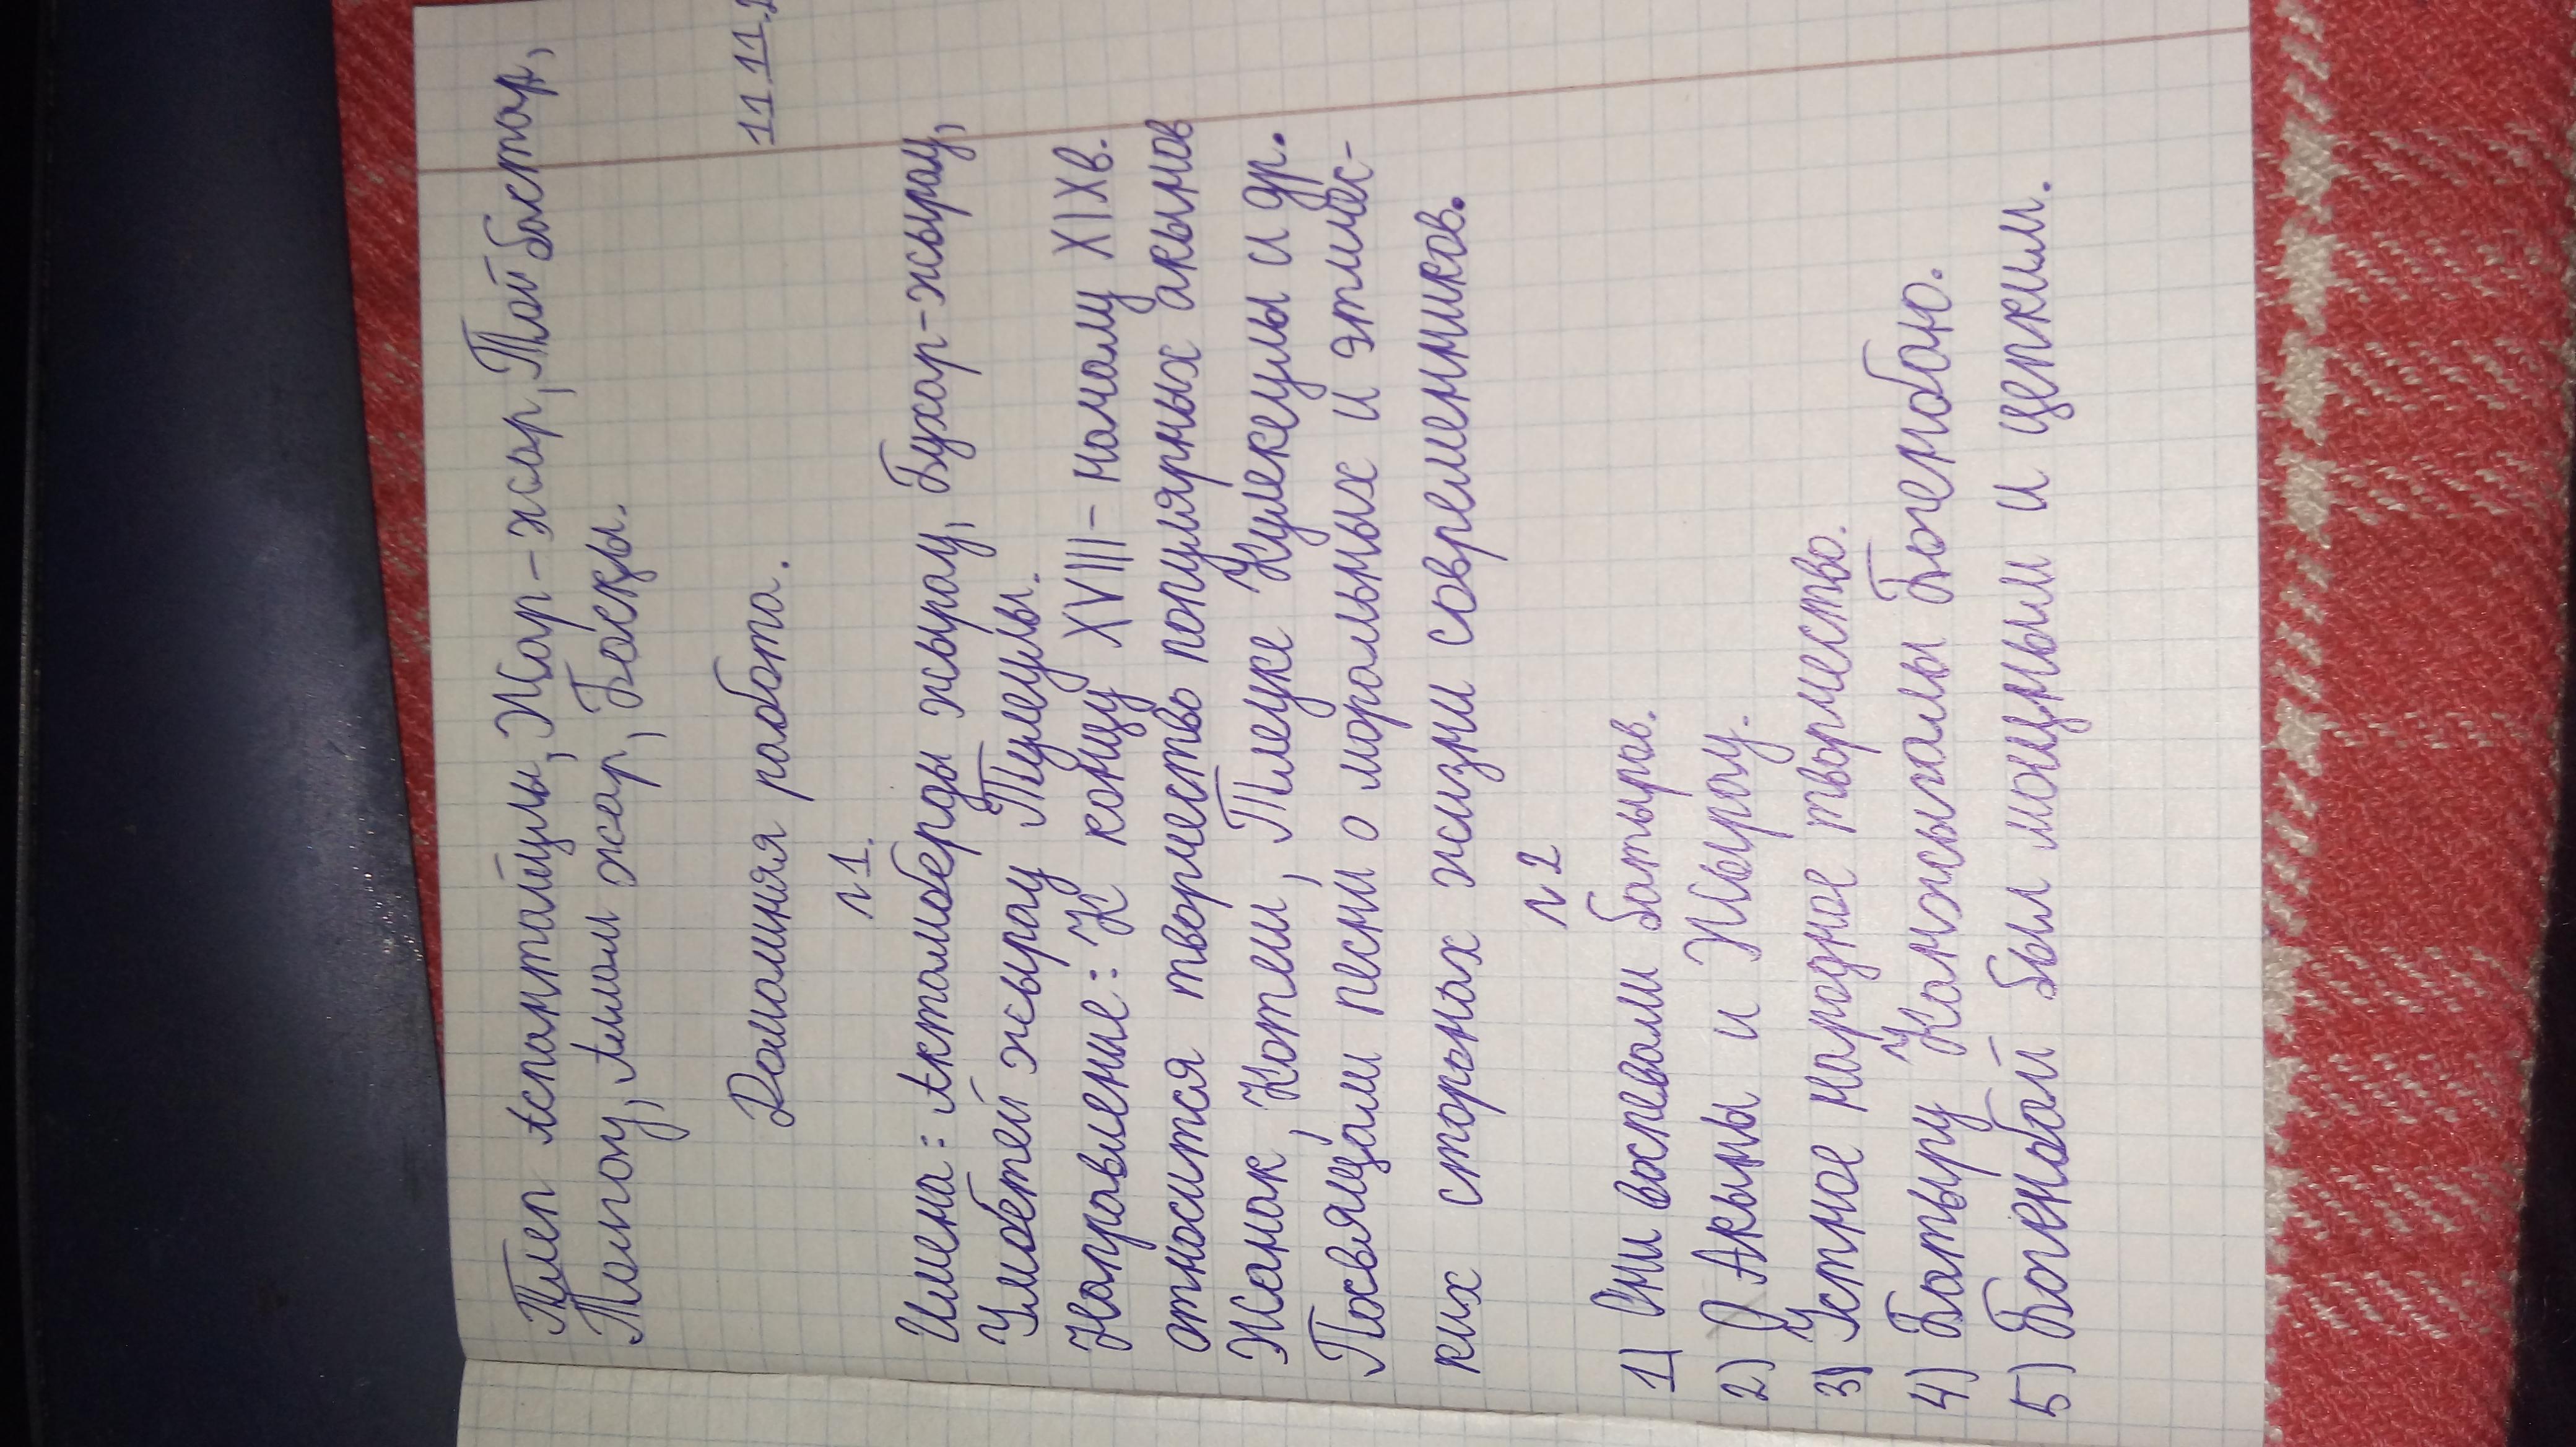 Тлеп Аспантайұлы, Жар-жар, Той бастар,
Толғау, Алом жар, Боскұы.
11.11.
Домашняя работа.
№1.
Имена: Актамберды жырау, Бухар-жырау,
Умбетей жырау Тулеулы.
Направление: К концу XVIII- началу XIXв.
относится творчество популярных акынов
Жанак, Котеш, Тлеуке Кулекеулы и др.
Посвящали песни о моральных и этичес-
ких сторонах жизни современников.
№2
1) Они воспевали батыров.
2) Акыны и Жырау.
3) Устное народное творчество.
4) Батыру Канжыгалы Богембаю.
5) Богенбай был мощным и цепким.